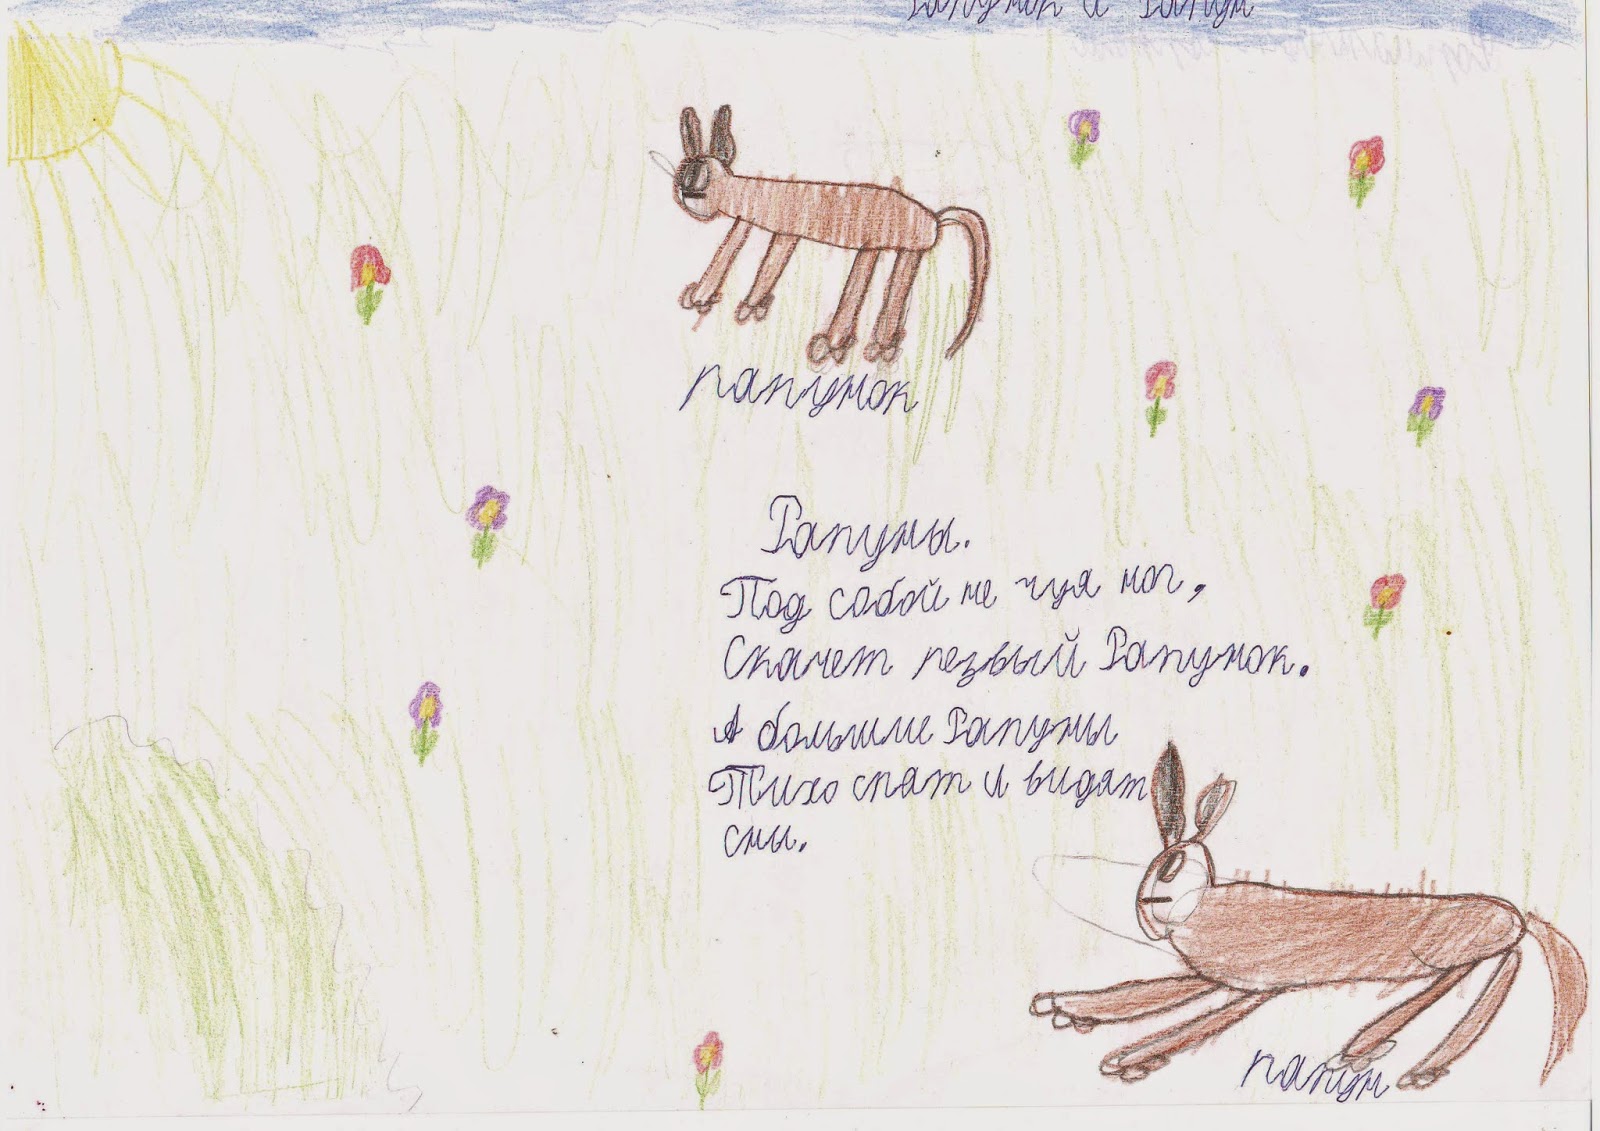 Рапунок и Рапун
рапунок
Рапуны.
Под собой не чуя ног,
Скачет резвый Рапунок.
А большие Рапуны
Тихо спят и видят
сны.
рапун